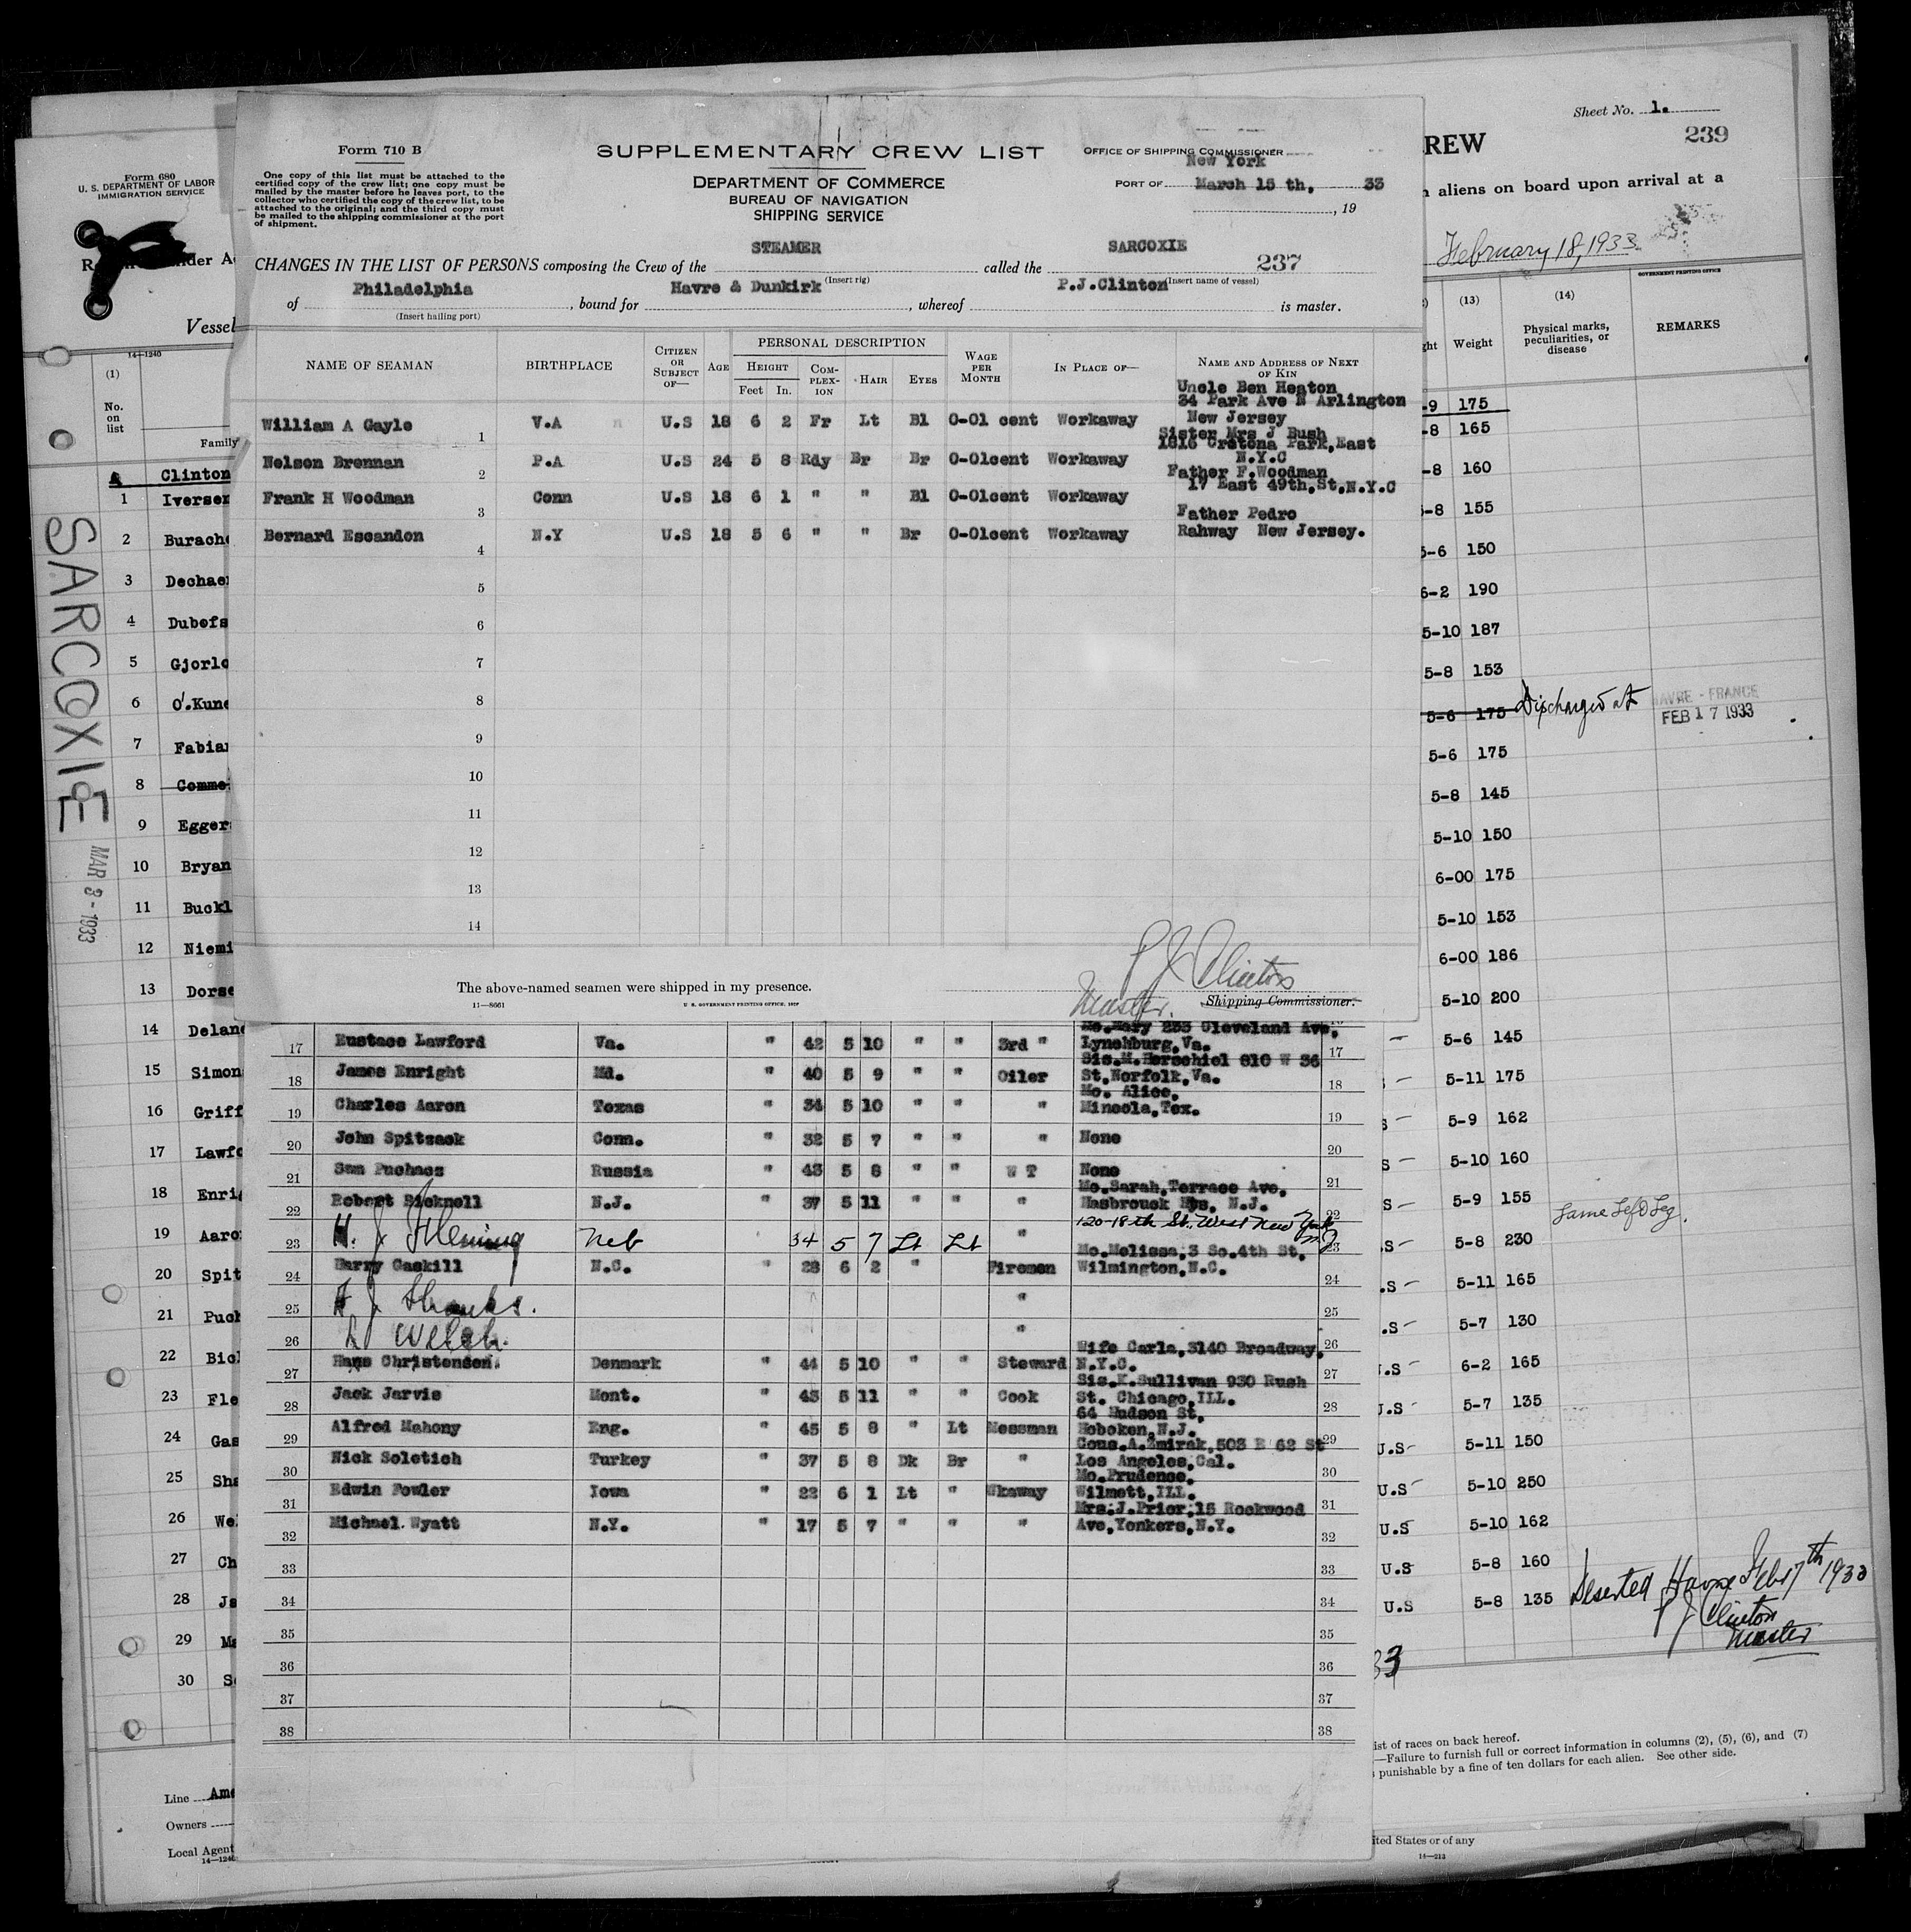 Sheet No. 1.
239
REW
n aliens on board upon arrival at a
February 18, 1933
GOVERNMENT PRINTING OFFICE
Form 680
U. S. DEPARTMENT OF LABOR
IMMIGRATION SERVICE
Vessel
14—1240
(1)
No. on list
Family
Form 710 B
SUPPLEMENTARY CREW LIST
OFFICE OF SHIPPING COMMISSIONER
New York
One copy of this list must be attached to the
certified copy of the crew list; one copy must be
mailed by the master before he leaves port, to the
collector who certified the copy of the crew list, to be
attached to the original; and the third copy must
be mailed to the shipping commissioner at the port
of shipment.
DEPARTMENT OF COMMERCE
BUREAU OF NAVIGATION
SHIPPING SERVICE
PORT OF March 15 th, 33
, 19
STEAMER SARCOXIE
CHANGES IN THE LIST OF PERSONS composing the Crew of the called the 237
(Insert rig) (Insert name of vessel)
Philadelphia Havre & Dunkirk P.J.Clinton
of , bound for , whereof is master.
(Insert hailing port)
NAME OF SEAMAN BIRTHPLACE CITIZEN OR SUBJECT OF— AGE PERSONAL DESCRIPTION WAGE PER MONTH IN PLACE OF— NAME AND ADDRESS OF NEXT OF KIN
HEIGHT COMPLEXION HAIR EYES
Feet In.
Uncle Ben Heaton
34 Park Ave N Arlington
William A Gayle 1 V.A U.S 18 6 2 Fr Lt Bl 0-01 cent Workaway New Jersey
Sister Mrs J Bush
1816 Crotona Park,East
Nelson Brennan 2 P.A U.S 24 5 8 Rdy Br Br 0-01cent Workaway N.Y.C
Father F.Woodman
17 East 49th,St,N.Y.C
Frank H Woodman 3 Conn U.S 18 6 1 " " Bl 0-01cent Workaway
Father Pedro
Bernard Escandon 4 N.Y U.S 18 5 6 " " Br 0-01cent Workaway Rahway New Jersey.
5
6
7
8
9
10
11
12
13
14
P J Clinton
Master.
The above-named seamen were shipped in my presence. Shipping Commissioner.
11—8661
U. S. GOVERNMENT PRINTING OFFICE
Mo.Mary 233 Cleveland Ave,
17 Eustace Lawford Va. " 42 5 10 " " 3rd " Lynchburg,Va. 17
Sis.M.Herschiel 810 W 36
18 James Enright Md. " 40 5 9 " " Oiler St,Norfolk,Va. 18
Mo. Alice,
19 Charles Aaron Texas " 34 5 10 " " " Mineola,Tex. 19
20 John Spitsack Conn. " 32 5 7 " " " None 20
21 Sam Puchacs Russia " 43 5 8 " " W T None 21
Mo.Sarah,Terrace Ave,
22 Robert Bicknell N.J. " 37 5 11 " " " Hasbrouck Hts, N.J. 22
120-18th St. West New York
23 H. J Fleming Neb 34 5 7 Lt Lt " N J 23
Mo.Melissa,3 So.4th St,
24 Harry Gaskill N.C. " 28 6 2 " Firemen Wilmington,N.C. 24
25 J Shanks. " 25
26 Welch. " 26
Wife Carla,3140 Broadway,
27 Hans Christensen. Denmark " 44 5 10 " " Steward N.Y.C. 27
Sis.K.Sullivan 930 Rush
28 Jack Jarvis Mont. " 45 5 11 " " Cook St. Chicago,ILL. 28
64 Hudson St,
29 Alfred Mahony Eng. " 45 5 8 " Lt Messman Hoboken,N.J. 29
Cous.A.Zmirak,503 E 62 St
30 Nick Soletich Turkey " 37 5 8 Dk Br " Los Angeles,Cal. 30
Mo.Prudence.
31 Edwin Fowler Iowa " 22 6 1 Lt " Wkaway Wilmett,ILL. 31
Mrs.J.Prior,15 Rockwood
32 Michael Wyatt N.Y. " 17 5 7 " " " Ave,Yonkers,N.Y. 32
33 33
34 34
35 35
36 36
37 37
38 38
SARCOXIE
MAR 3 - 1933
Clinton
1 Iversen
2 Burache
3 Dechaer
4 Dubofs
5 Gjorlo
6 O'.Kune
7 Fabian
8 Comme
9 Egger
10 Bryan
11 Buckl
12 Niemi
13 Dorse
14 Delane
15 Simon
16 Griff
17 Lawfo
18 Enrig
19 Aaro
20 Spit
21 Puch
22 Bic
23 Fle
24 Gas
25 Sha
26 We
27 Ch
28 Ja
29 Ma
30 So
Line Ame
Owners
Local Agent
14—1240
(13) (14)
ght Weight Physical marks, peculiarities, or disease REMARKS
-9 175
-8 165
-8 160
-8 155
5-6 150
6-2 190
5-10 187
5-8 153
5-6 175 Discharged at HAVRE - FRANCE
FEB 17 1933
5-6 175
5-8 145
5-10 150
6-00 175
5-10 153
6-00 186
5-10 200
5-6 145
5-11 175
S 5-9 162
S 5-10 160
S 5-9 155 Lame Left Leg.
.S 5-8 230
.S 5-11 165
.S 5-7 130
.S 6-2 165
.S 5-7 135
U.S 5-11 150
U.S 5-10 250
U.S 5-10 162
U.S 5-8 160
U.S 5-8 135 Deserted Havre Feb 17th 1933
P J Clinton
Master
33
ist of races on back hereof.
—Failure to furnish full or correct information in columns (2), (5), (6), and (7)
punishable by a fine of ten dollars for each alien. See other side.
ited States or of any
14—213